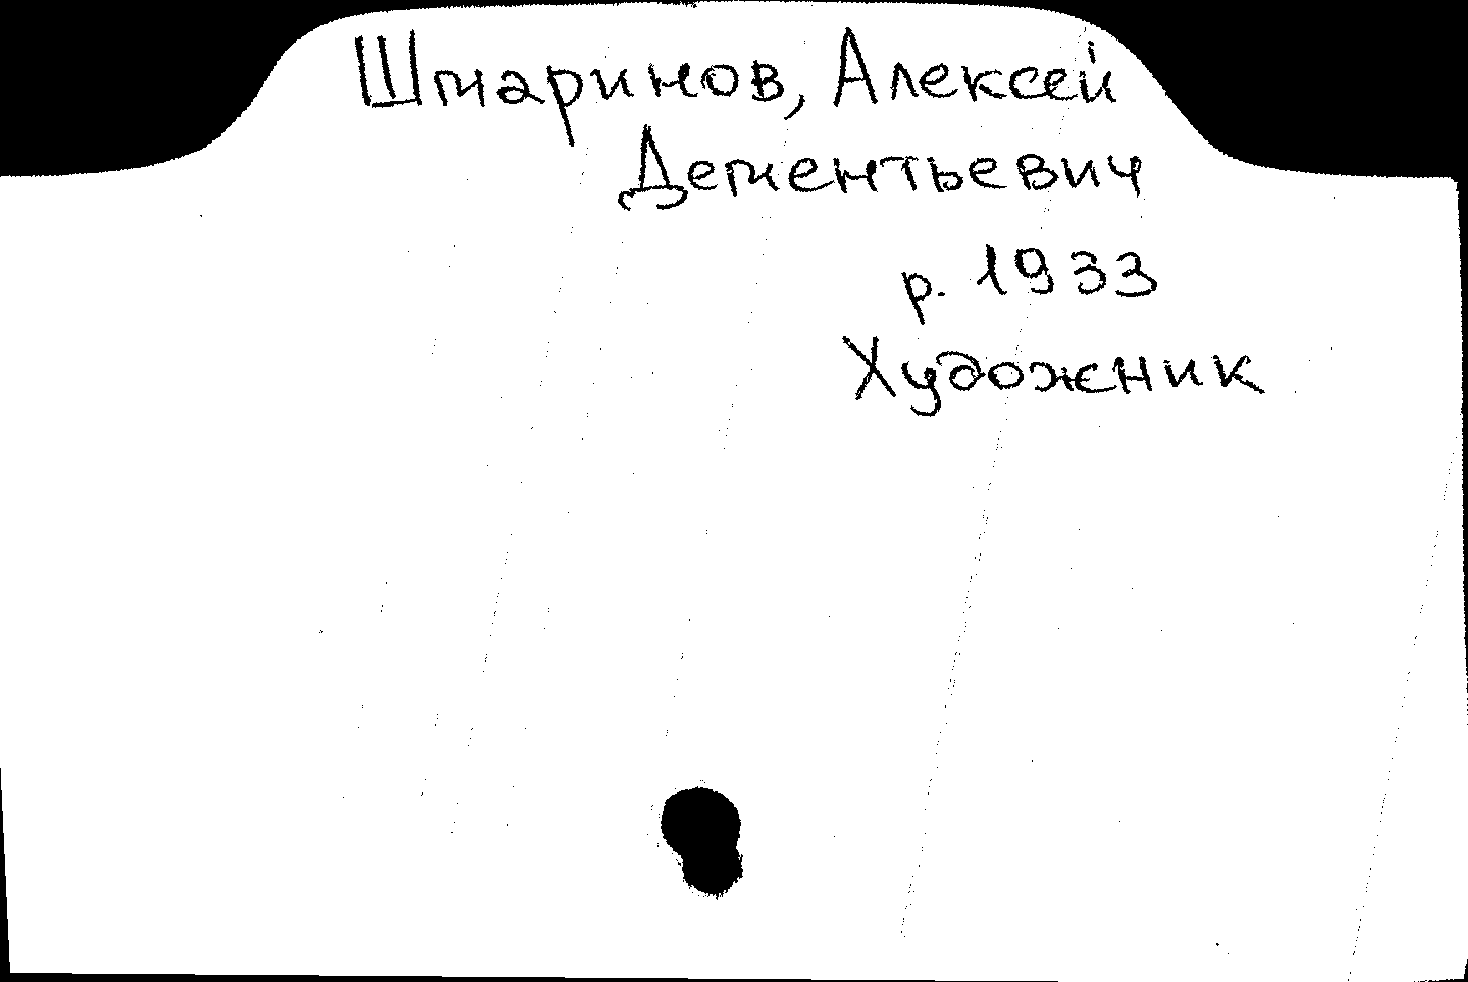 Шмаринов, Алексей
Дементьевич
р. 1933
Художник